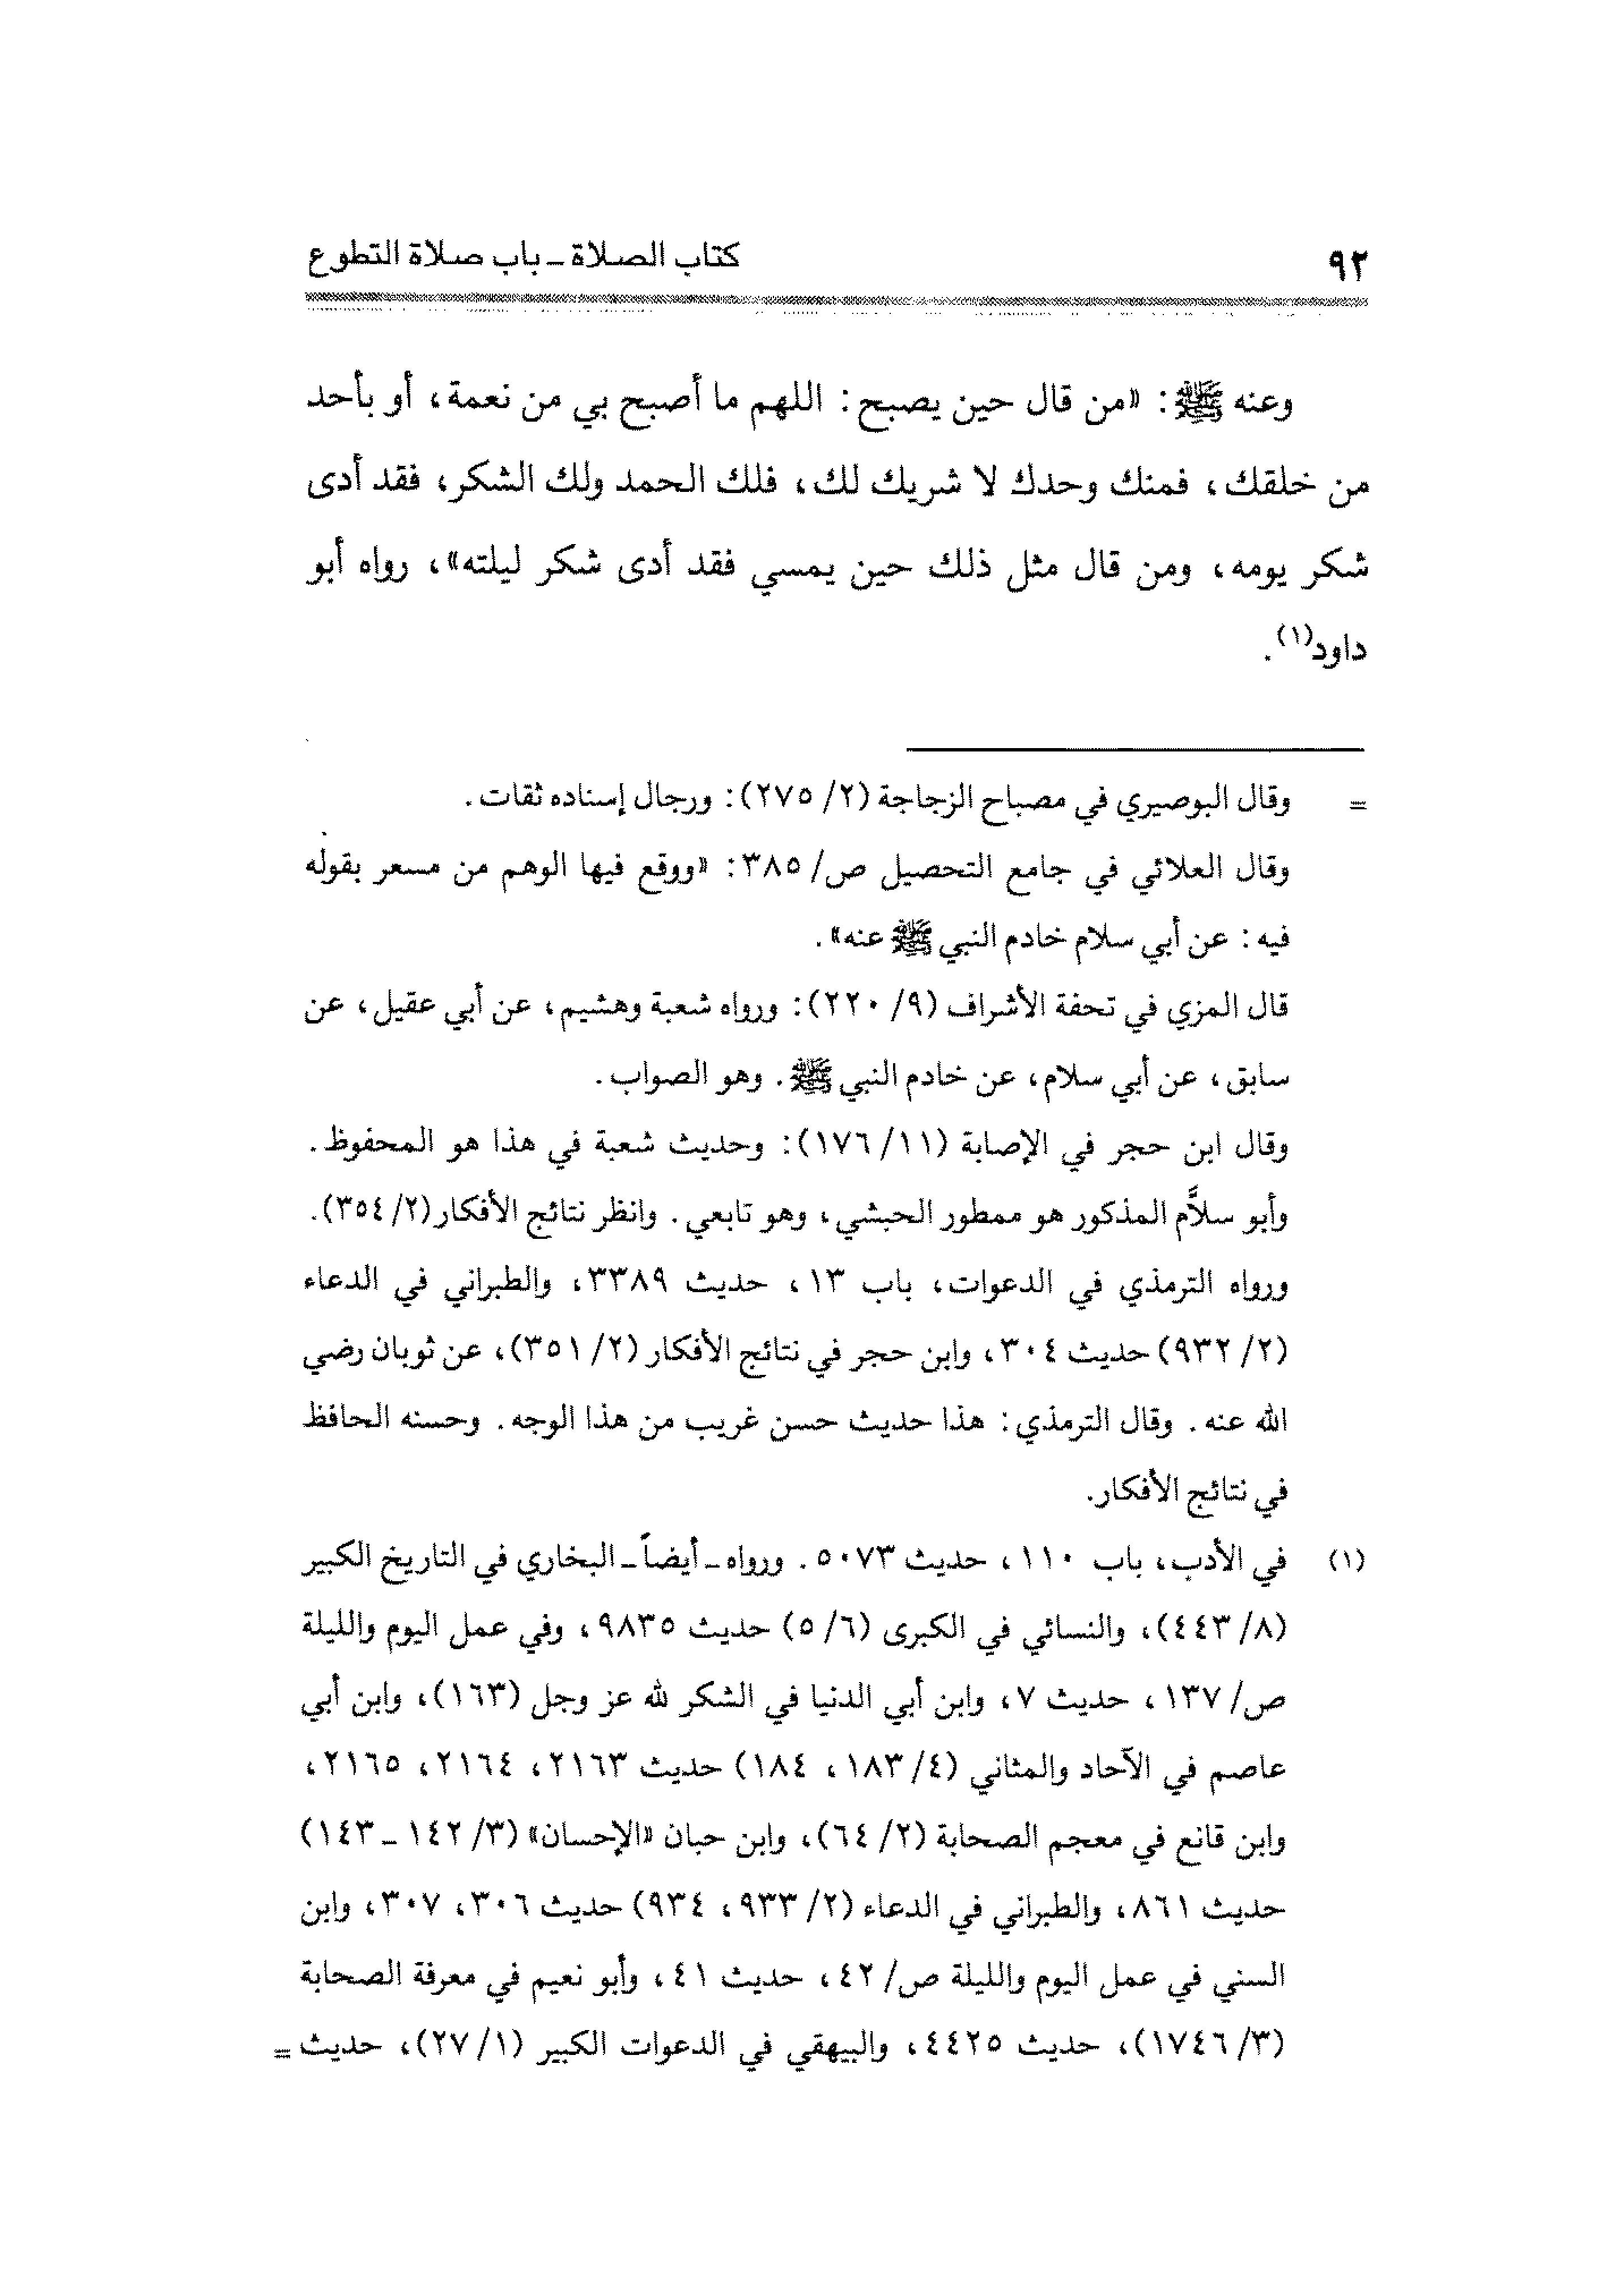 ٩٢
كتاب الصلاة ـ باب صلاة التطوع
وعنه ﷺ: «من قال حين يصبح: اللهم ما أصبح بي من نعمة، أو بأحد
من خلقك، فمنك وحدك لا شريك لك، فلك الحمد ولك الشكر، فقد أدى
شكر يومه، ومن قال مثل ذلك حين يمسي فقد أدى شكر ليلته»، رواه أبو
داود(١).
= وقال البوصيري في مصباح الزجاجة (٢/ ٢٧٥): ورجال إسناده ثقات.
وقال العلائي في جامع التحصيل ص/ ٣٨٥: «ووقع فيها الوهم من مسعر بقوله
فيه: عن أبي سلام خادم النبي ﷺ عنه».
قال المزي في تحفة الأشراف (٩/ ٢٢٠): ورواه شعبة وهشيم، عن أبي عقيل، عن
سابق، عن أبي سلام، عن خادم النبي ﷺ. وهو الصواب.
وقال ابن حجر في الإصابة (١١/ ١٧٦): وحديث شعبة في هذا هو المحفوظ.
وأبو سلاَّم المذكور هو ممطور الحبشي، وهو تابعي. وانظر نتائج الأفكار (٢/ ٣٥٤).
ورواه الترمذي في الدعوات، باب ١٣، حديث ٣٣٨٩، والطبراني في الدعاء
(٢/ ٩٣٢) حديث ٣٠٤، وابن حجر في نتائج الأفكار (٢/ ٣٥١)، عن ثوبان رضي
الله عنه. وقال الترمذي: هذا حديث حسن غريب من هذا الوجه. وحسنه الحافظ
في نتائج الأفكار.
(١) في الأدب، باب ١١٠، حديث ٥٠٧٣. ورواه ـ أيضاً ـ البخاري في التاريخ الكبير
(٨/ ٤٤٣)، والنسائي في الكبرى (٦/ ٥) حديث ٩٨٣٥، وفي عمل اليوم والليلة
ص/ ١٣٧، حديث ٧، وابن أبي الدنيا في الشكر لله عز وجل (١٦٣)، وابن أبي
عاصم في الآحاد والمثاني (٤/ ١٨٣، ١٨٤) حديث ٢١٦٣، ٢١٦٤، ٢١٦٥،
وابن قانع في معجم الصحابة (٢/ ٦٤)، وابن حبان «الإحسان» (٣/ ١٤٢ ـ ١٤٣)
حديث ٨٦١، والطبراني في الدعاء (٢/ ٩٣٣، ٩٣٤) حديث ٣٠٦، ٣٠٧، وابن
السني في عمل اليوم والليلة ص/ ٤٢، حديث ٤١، وأبو نعيم في معرفة الصحابة
(٣/ ١٧٤٦)، حديث ٤٤٢٥، والبيهقي في الدعوات الكبير (١/ ٢٧)، حديث =